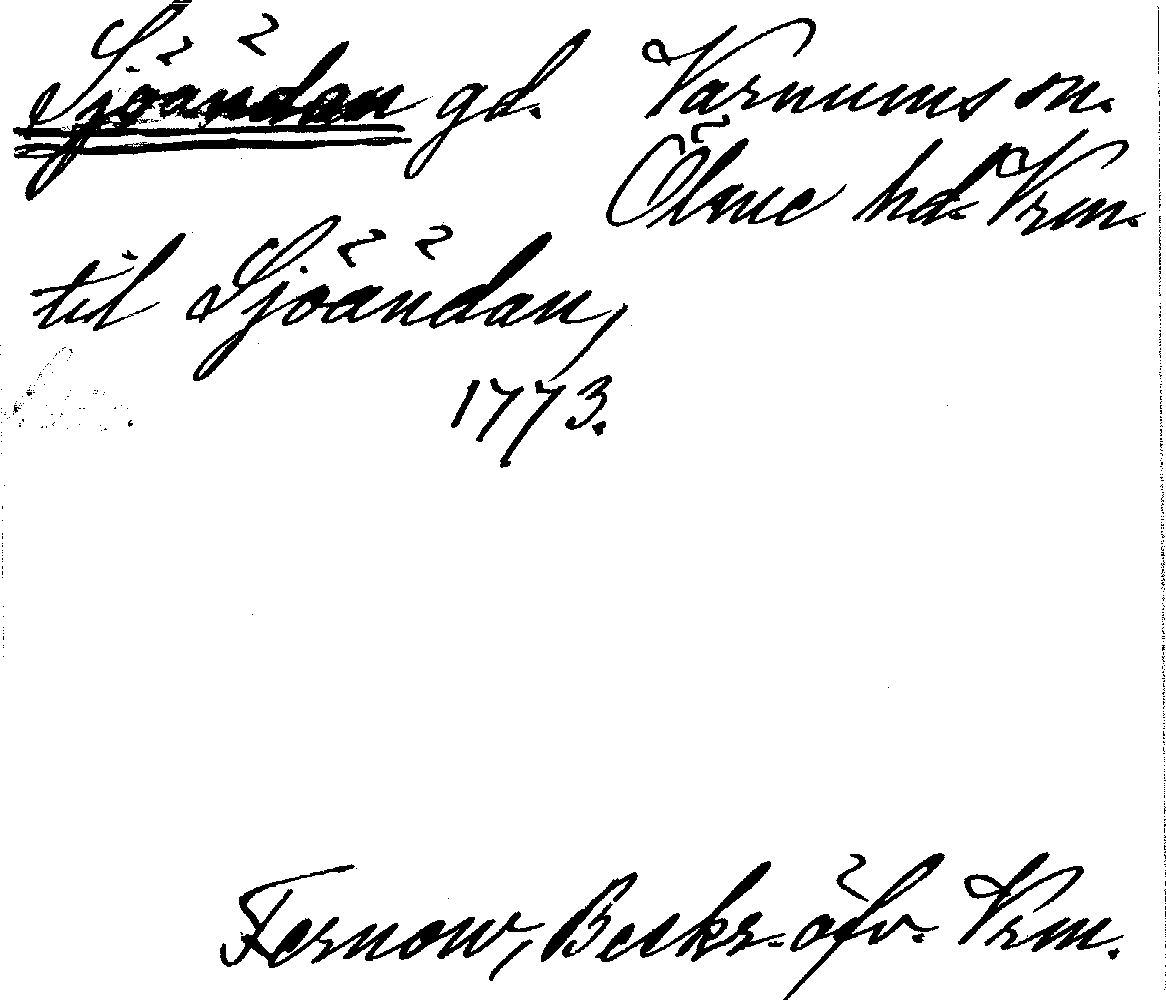 Sjöändan gd. Varnums sn.
Ölme hd. Vrm.
til Sjöändan,
1773.
Fernow, Beskr. öfv. Vrm.